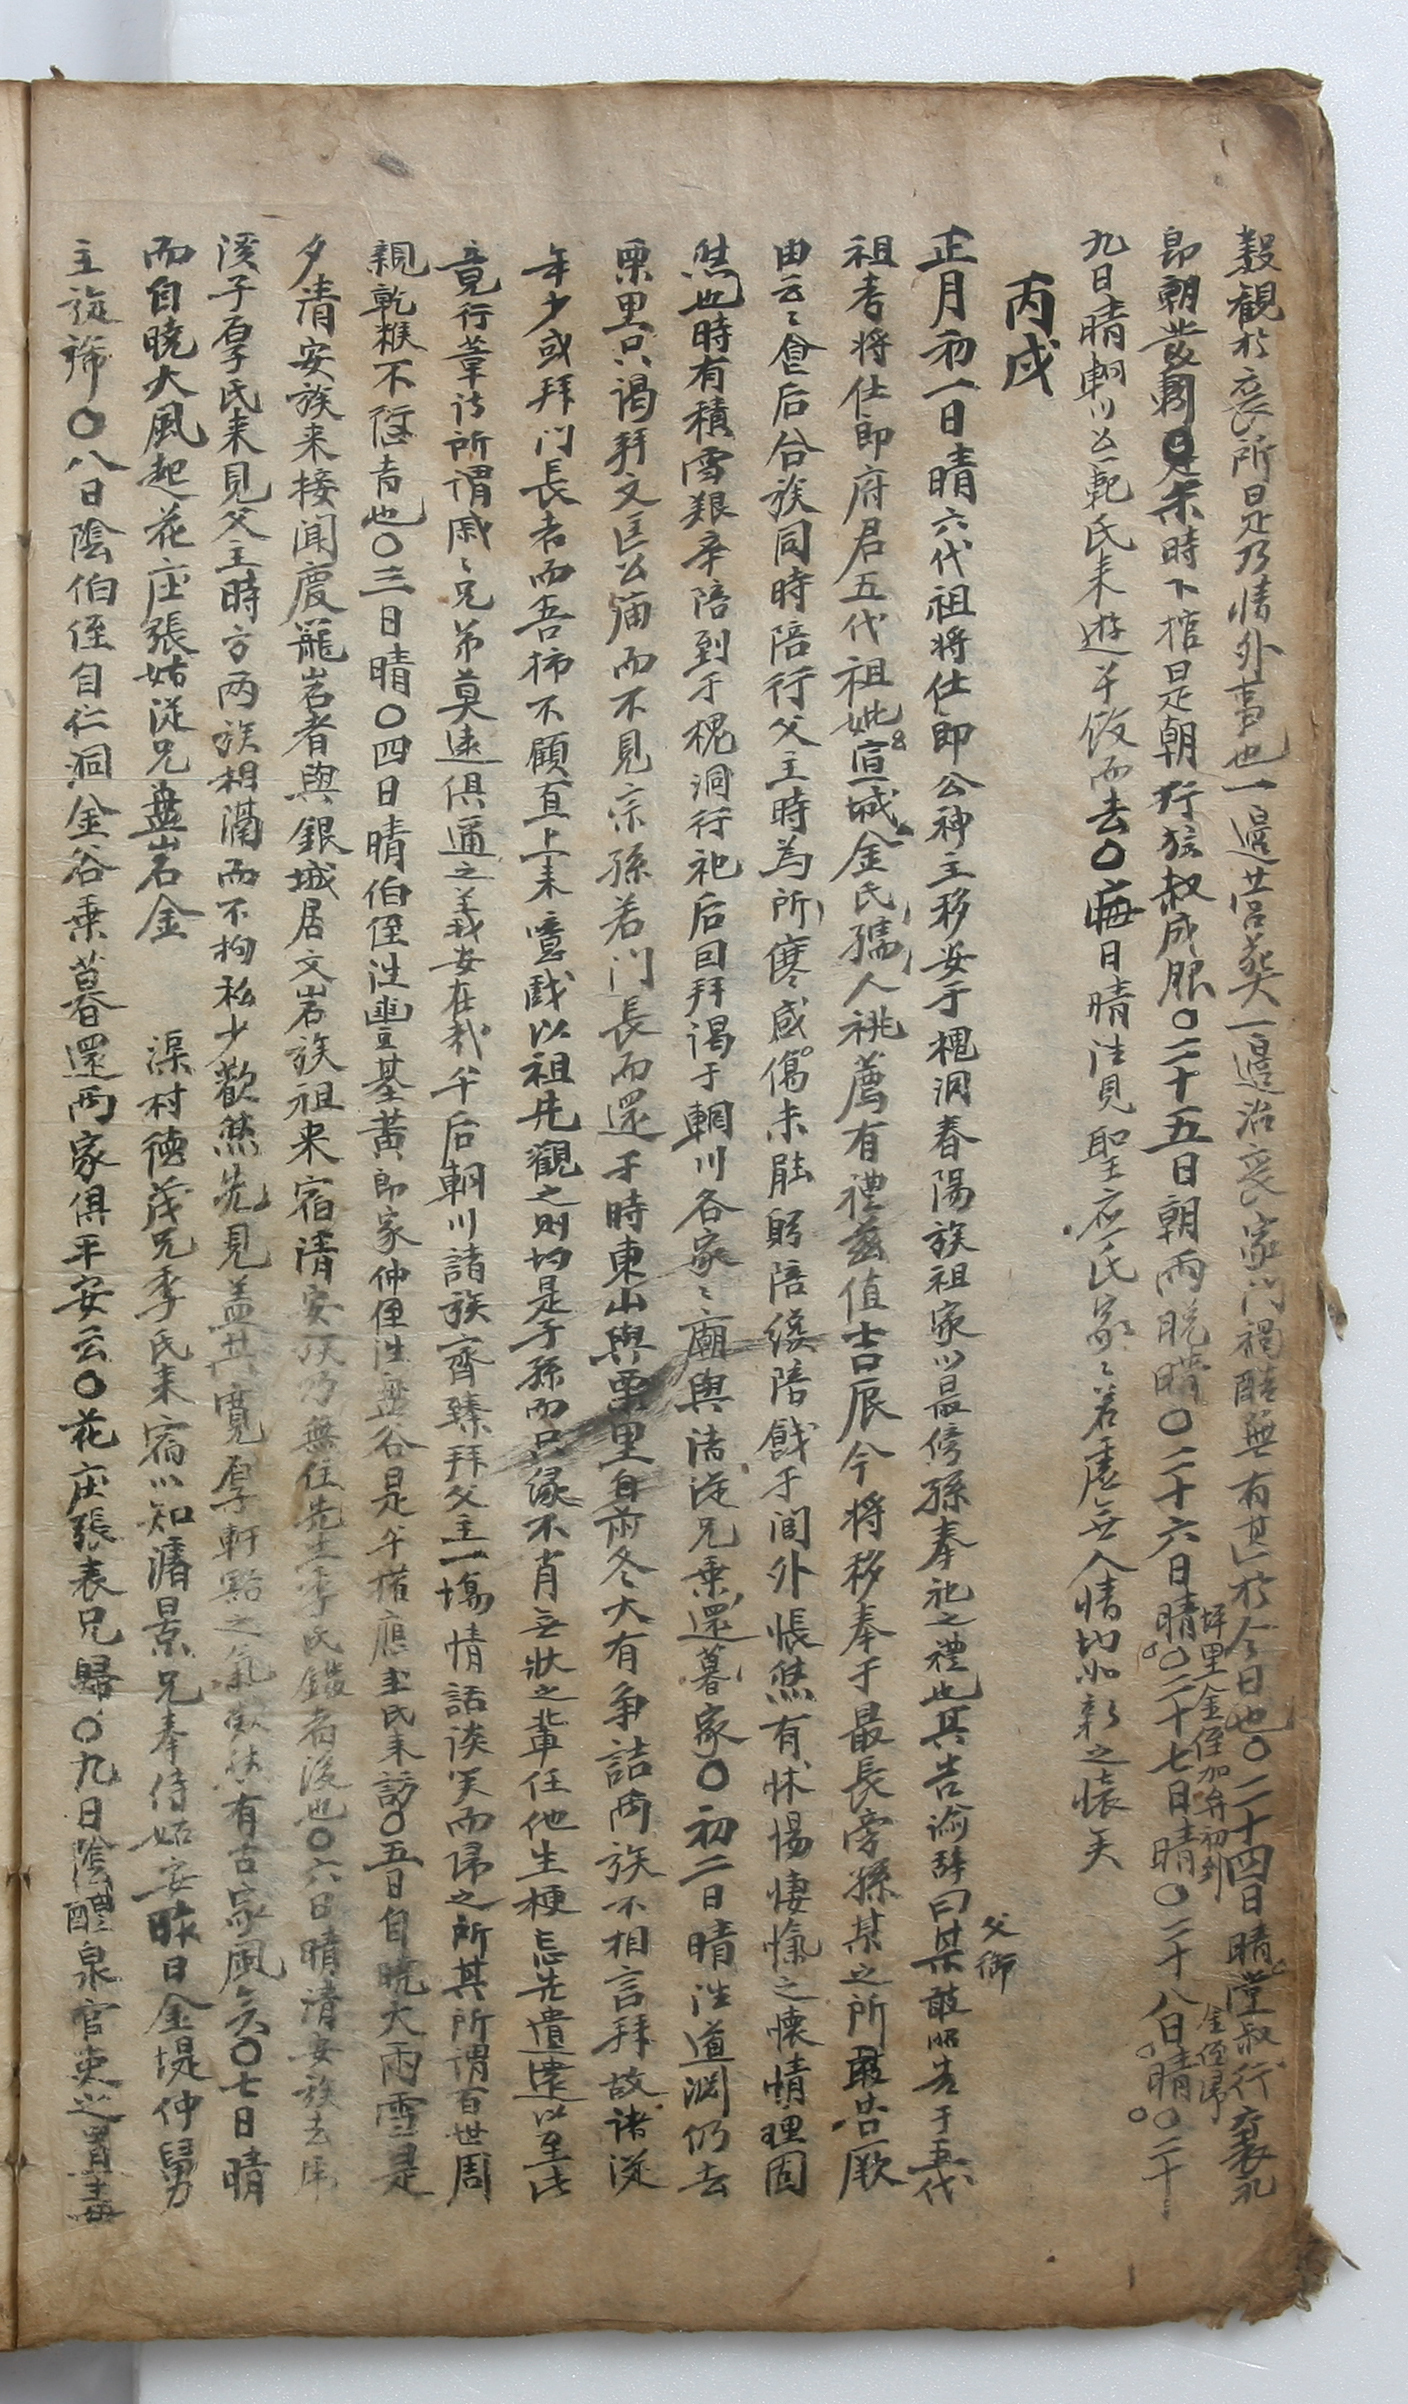 穀觀於喪所是乃情外事也一邊營葬一邊治喪家門禍酷無有甚於今日也〇二十四日晴堂叔行襄礼
卽朝發靷〇是未時下棺是朝行弦叔成服〇二十五日朝雨晩晴〇二十六日晴〇二十七日晴〇二十八日晴〇二十
坪里金侄加弁初到
金侄歸
九日晴輞川公範氏来遊午飯而去〇晦日晴往見聖应氏家〻若虛無人情切如新之懷矣
丙戌
正月初一日晴六代祖將仕郞公神主移安于槐洞春陽族祖家以最傍孫奉祀之禮也其告諭辭曰某敢昭告于五代
父御
祖考將仕郞府君五代祖妣宣城金氏孺人祧薦有禮玆値吉辰今將移奉于最長旁孫某之所敢告厥
由云〻食后合族同時陪行父主時爲所寒感傷未能躬陪後陪餞于閭外悵然有怵惕悽愴之懷情理固
然也時有積雪艱辛陪到于槐洞行祀后回拜謁于輞川各家〻廟與淸從兄乗還暮家〇初二日晴往道渊仍去
栗里只謁拜文匡公庙而不見宗孫若門長而還于時東山與栗里自前冬大有爭詰兩族不相言拜故诸從
年少或拜门長者而吾柿不顧直上来噫戱以祖先觀之則均是子孫而只緣不肖無狀之輩任他生梗忘先遺遠以至此
竟行葦詩所謂戚〻兄弟莫遠俱通之義安在哉午后輞川諸族齊臻拜父主一塲情話談笑而歸之所其所謂百世周
親乾糇不愆者也〇三日晴〇四日晴伯侄往豊基黃郞家仲侄往盘谷是午搢應圭氏来訪〇五日自曉大雨雪是
夕淸安族来接聞慶籠岩者與銀城居文岩族祖来宿淸安族乃無任先生季氏鍛者後也〇六日晴淸安族去虎
溪子厚氏来見父主時方两族相濶而不拘私少歡然先見盖其寬厚軒豁之氣犹然有古家風矣〇七日晴
而自曉大風起花庄張姑從兄盤岩金 渠村德茂兄季氏来宿以知潘景兄奉侍姑安昨日金堤仲舅
主旋歸〇八日陰伯侄自仁洞金谷乗暮還两家俱平安云〇花庄張表兄歸〇九日陰醴泉官吏迎冒妻